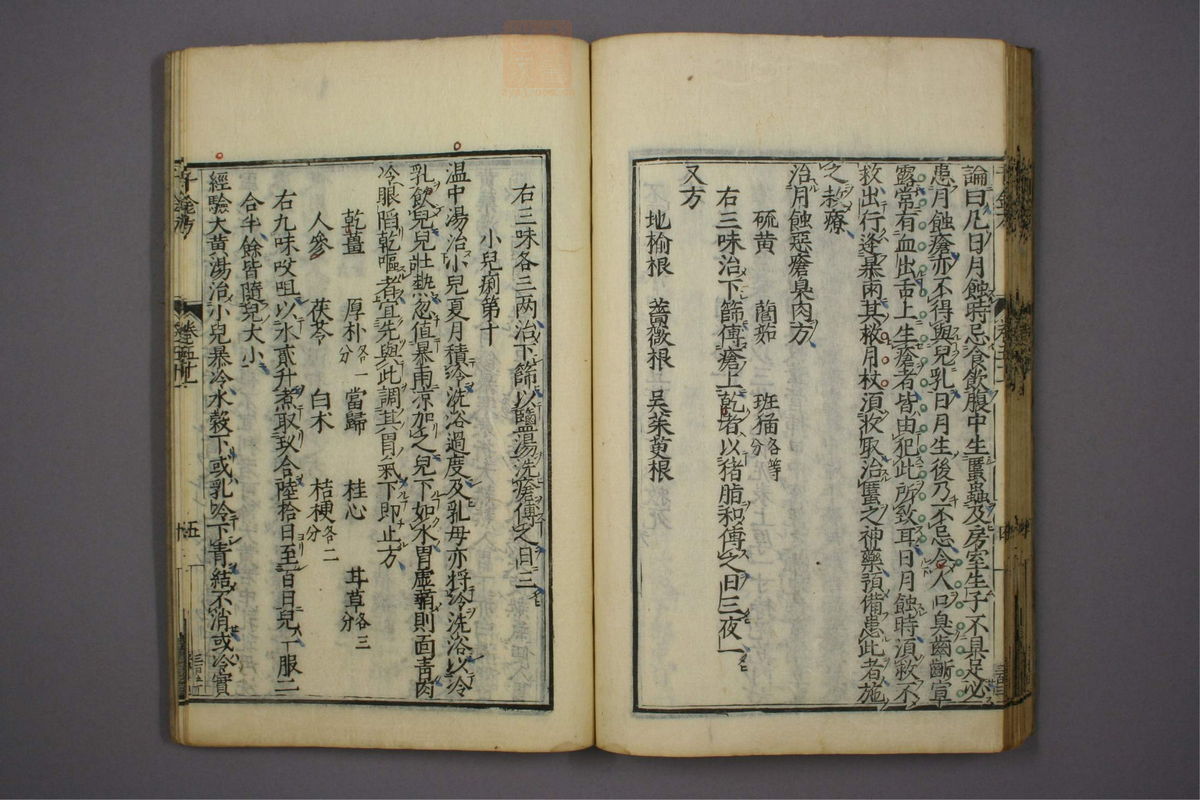 論曰凡日月蝕時忌食飲腹中生䘌蟲及房室生子不具足必
患月蝕瘡亦不得與兒乳日月生後乃不忌令人口臭齒齗宣
露常有血出舌上生瘡者皆由犯此所致耳日月蝕時須救不
救出行逢暴雨其救月杖須收取治䘌之神藥預備患此者施
之救療
治月蝕惡瘡臭肉方
硫黄 䕡茹 班猫各等分
右三味治下篩傅瘡上乾者以猪脂和傅之日三夜一
又方
地榆根 薔薇根 吳茱萸根
右三味各三兩治下篩以鹽湯洗瘡傅之日三
小兒痢第十
温中湯治小兒夏月積冷洗浴過度及乳母亦将冷洗浴以冷
乳飲兒兒壯熱忽值暴雨凉加之兒下如水胃虚弱則面青肉
冷眼陷乾嘔者宜先與此調其胃氣下即止方
乾薑 厚朴各一分 當歸 桂心 甘草各三分
人參 茯苓 白术 桔梗各二分
右九味㕮咀以水貳升煮取玖合陸拾日至百日兒一服二
合半餘皆隨兒大小
經驗大黄湯治小兒暴冷水穀下或乳冷下青結不消或冷實